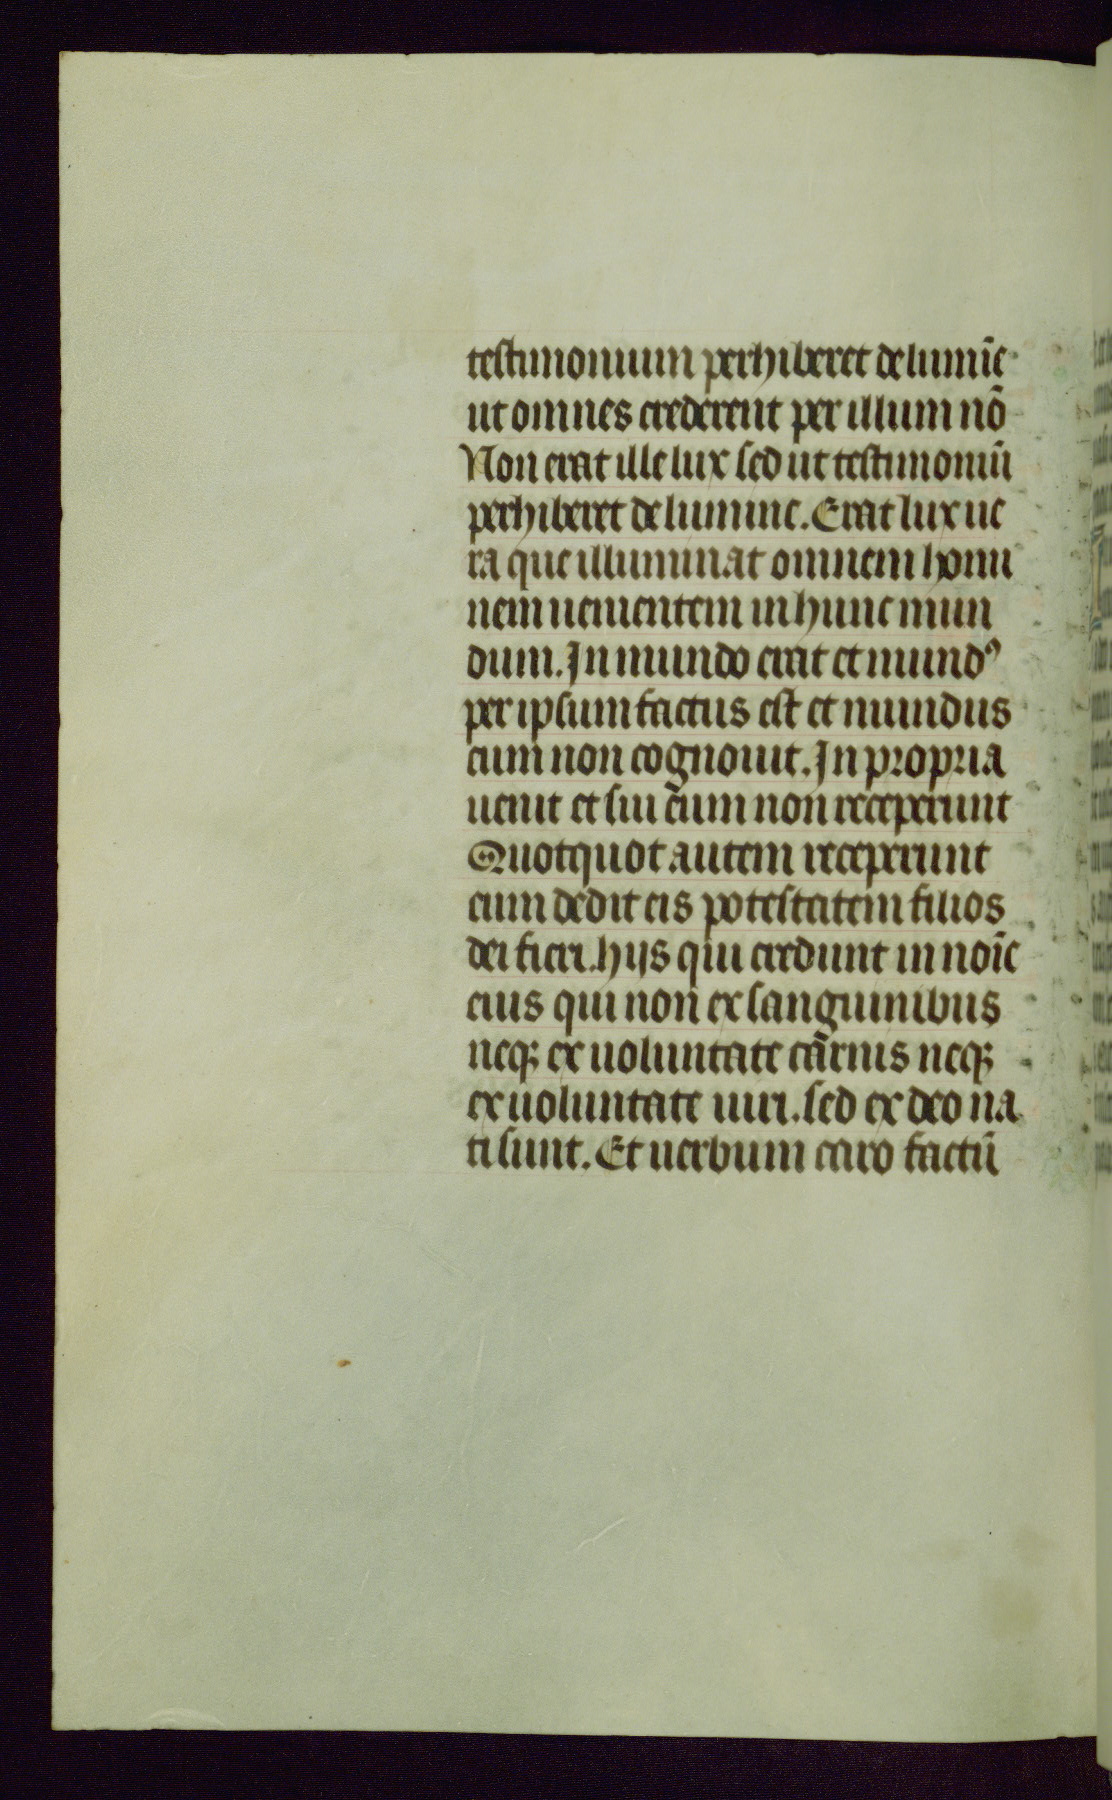 testimonium perhiberet de lumīe
ut omnes crederent per illum nō
Non erat ille lux sed ut testimoniū
perhiberet de lumine. Erat lux ue
ra que illuminat omnem homi
nem uenientem in hunc mun
dum. In mundo erat et mundꝰ
per ipsum factus est et mundus
eum non cognouit. In propria
uenit et sui eum non receperunt
Quotquot autem receperunt
eum dedit eis potestatem filios
dei fieri. hijs qui credunt in noīe
eius qui non ex sanguinibus
neqꝫ ex uoluntate carnis neqꝫ
ex uoluntate uiri. sed ex deo na
ti sunt. Et uerbum caro factū